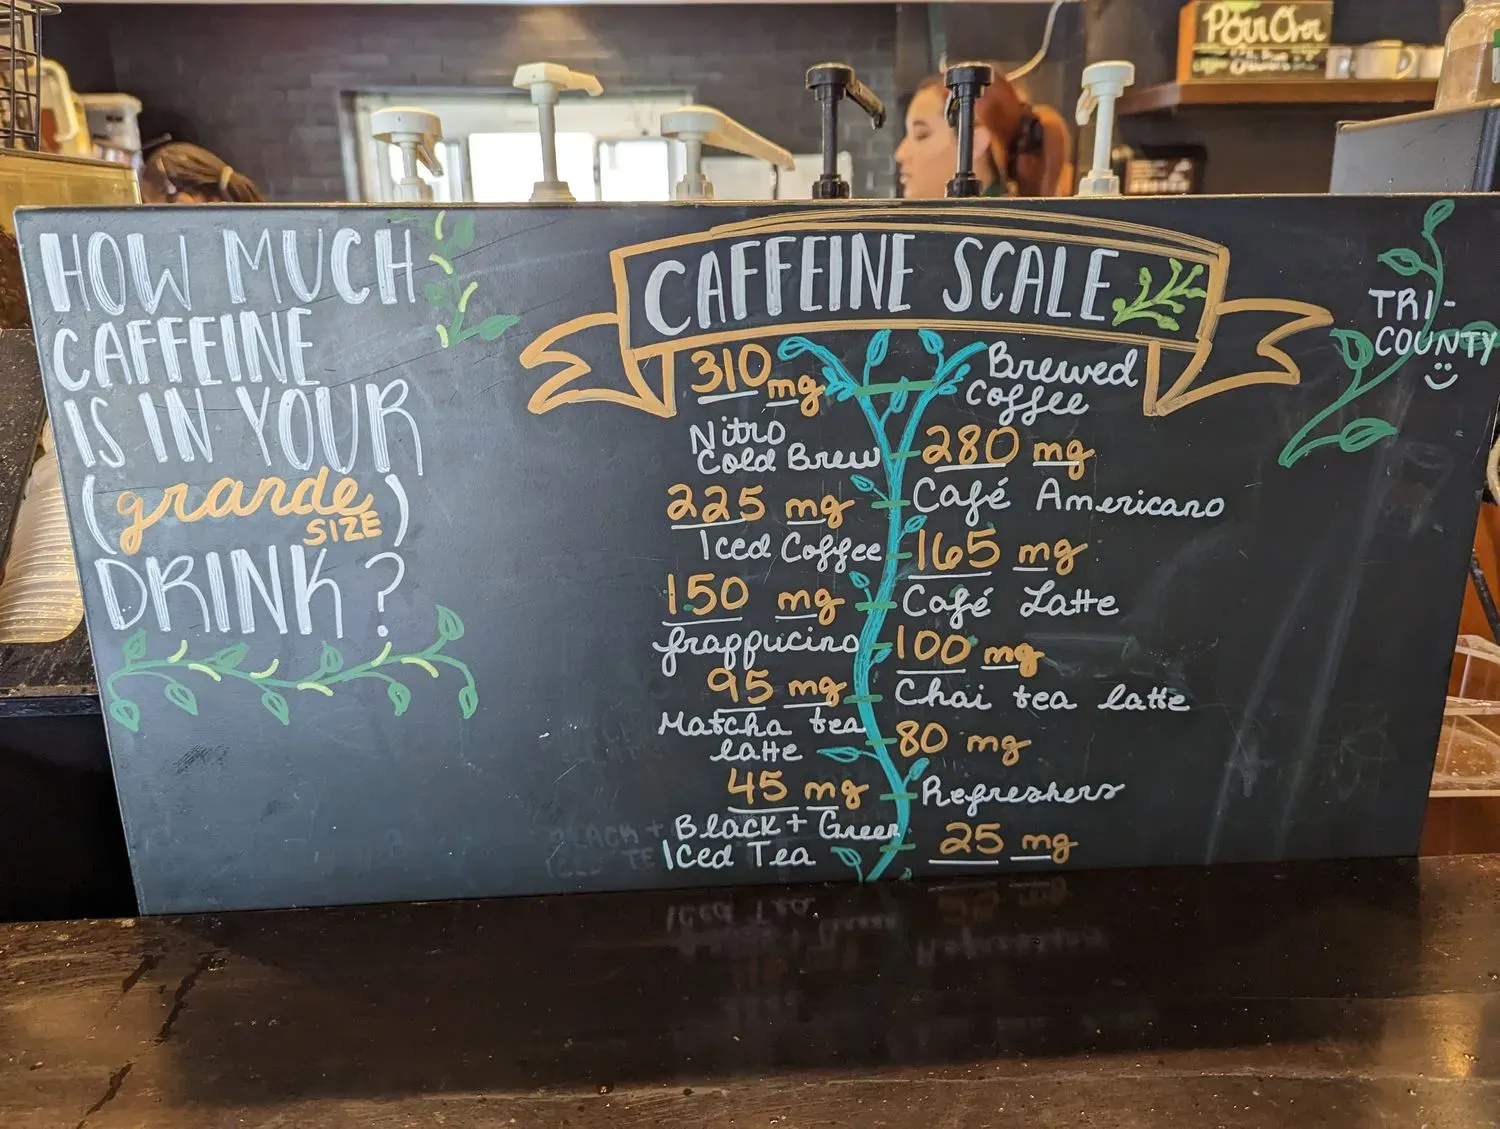 Pour Over
HOW MUCH
CAFFEINE
IS IN YOUR
(grande
SIZE)
DRINK?
CAFFEINE SCALE
TRI-
COUNTY
310 mg
Brewed
Coffee
Nitro
Cold Brew
280 mg
225 mg
Café Americano
Iced Coffee
165 mg
150 mg
Café Latte
frappucino
100 mg
95 mg
Chai tea latte
Matcha tea
latte
80 mg
45 mg
Refreshers
Black + Green
Iced Tea
25 mg